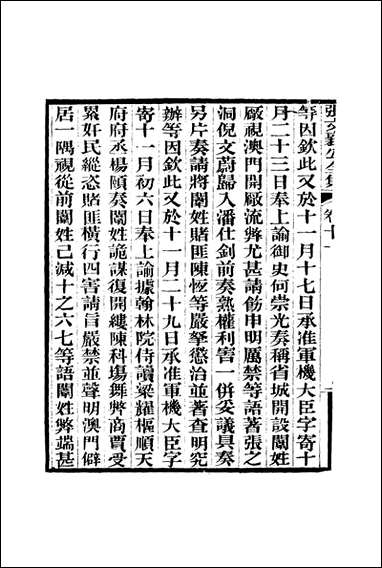 等因欽此又於十一月十七日承准軍機大臣字寄十
月二十三日奉上諭御史何崇光奏稱省城開設闈姓
廠視澳門開廠流弊尤甚請飭申明厲禁等語著張之
洞倪文蔚歸入潘仕釗前奏熟權利害一併妥議具奏
另片奏請將闈姓賭匪陳恆等嚴拏懲治並著查明究
辦等因欽此又於十一月二十九日承准軍機大臣字
寄十一月初六日奉上諭據翰林院侍讀梁耀樞順天
府府丞楊頤奏闈姓詭謀復開縷陳科場舞弊商賈受
累奸民縱恣賭匪橫行四害請旨嚴禁並聲明澳門僻
居一隅視從前闈姓已減十之六七等語闈姓弊端甚